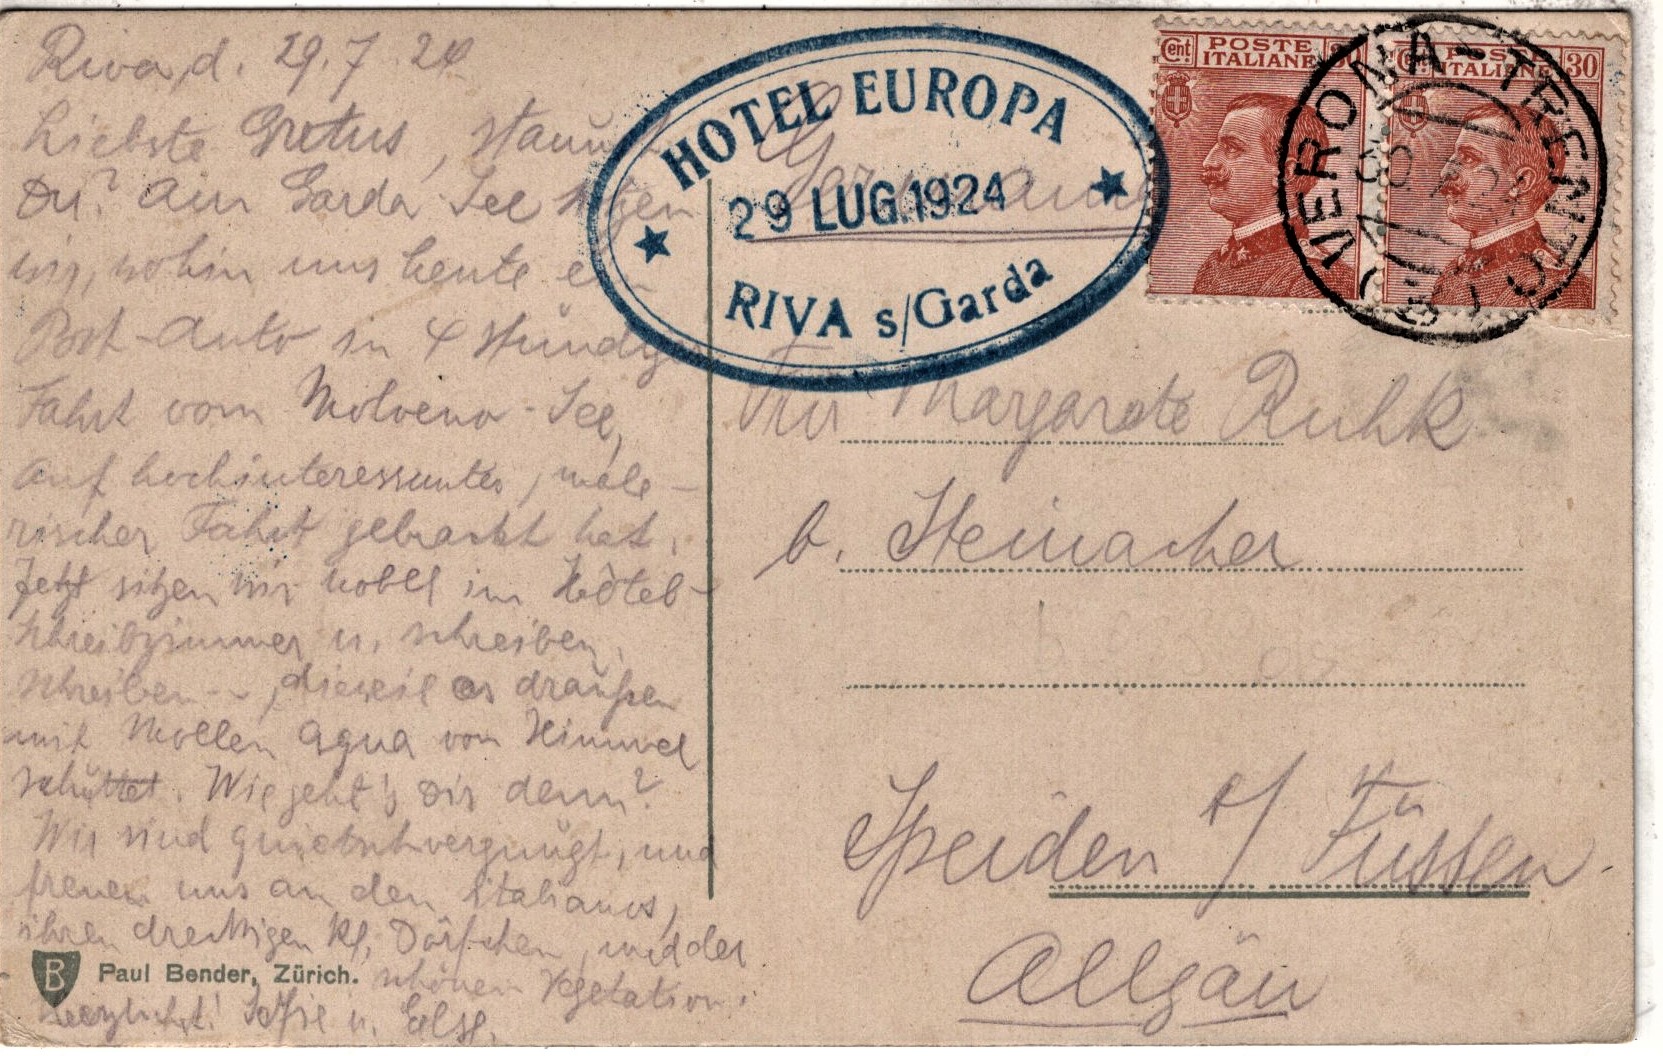 Riva, d. 29.7.24
Liebste Gretus, staunst
Du? Am Garda See sitzen
wir, wohin uns heute ein
Post-Auto in 4 stündiger
Fahrt vom Molveno-See,
auf hochinteressanter, male-
rischer Fahrt gebracht hat.
Jetzt sitzen wir nobel im Hôtel-
schreibzimmer u. schreiben,
schreiben --, dieweil es draußen
mit Mollen aqua vom Himmel
schüttet. Wie geht's Dir denn?
Wir sind quietschvergnügt, und
freuen uns an den Italianos,
ihren dreckigen kl. Dörfchen, und der
schönen Vegetation.
Herzlichst! Sofie u. Else.
B Paul Bender, Zürich.
HOTEL EUROPA
29 LUG.1924
RIVA s/Garda
Germania
Cent POSTE ITALIANE 30
Cent POSTE ITALIANE 30
VERONA-TRENTO
Frau Margarete Ruhk
b. Steinacher
Speiden a/ Füssen
Allgäu